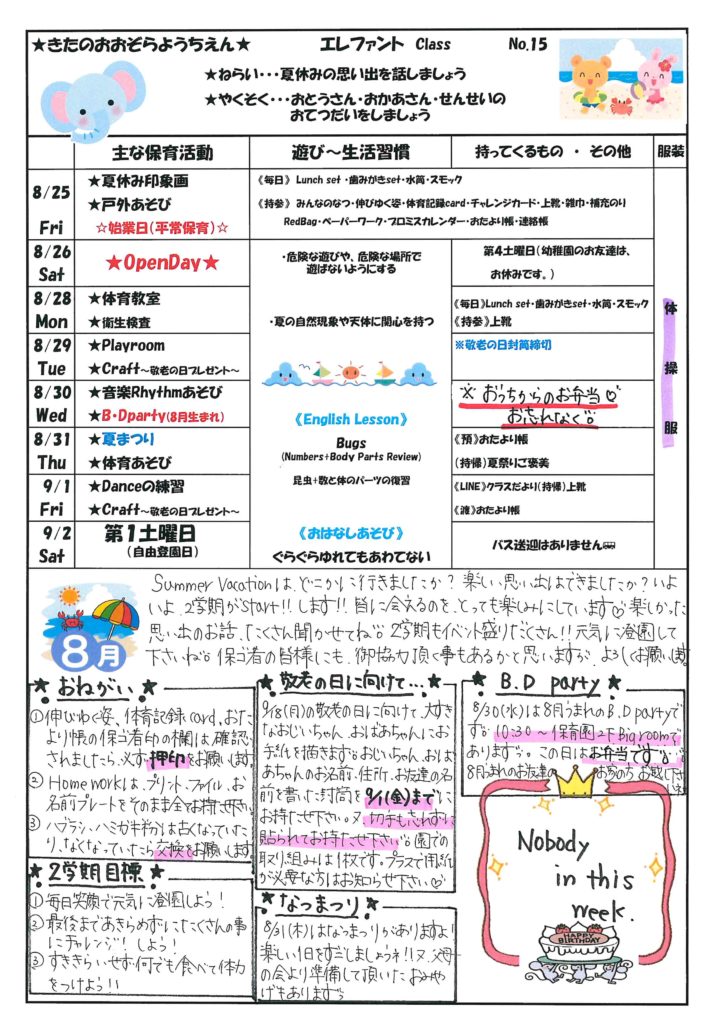 ★きたのおおぞらようちえん★ エレファント Class No.15
★ねらい・・・夏休みの思い出を話しましょう
★やくそく・・・おとうさん・おかあさん・せんせいの
おてつだいをしましょう
主な保育活動 遊び～生活習慣 持ってくるもの ・ その他 服装
8/25 Fri
★夏休み印象画
★戸外あそび
☆始業日(平常保育)☆
《毎日》 Lunch set ・歯みがきset・水筒・スモック
《持参》 みんなのなつ・伸びゆく姿・体育記録card・チャレンジカード・上靴・雑巾・補充のり
RedBag・ペーパーワーク・プロミスカレンダー・おたより帳・連絡帳
8/26 Sat
★OpenDay★
・危険な遊びや、危険な場所で
遊ばないようにする
第4土曜日(幼稚園のお友達は、
お休みです。)
8/28 Mon
★体育教室
★衛生検査
・夏の自然現象や天体に関心を持つ
《毎日》Lunch set・歯みがきset・水筒・スモック
《持参》上靴
体操服
8/29 Tue
★Playroom
★Craft～敬老の日プレゼント～
※敬老の日封筒締切
8/30 Wed
★音楽Rhythmあそび
★B・Dparty(8月生まれ)
※ おうちからのお弁当♡
お忘れなく。
《English Lesson》
Bugs
(Numbers+Body Parts Review)
昆虫+数と体のパーツの復習
8/31 Thu
★夏まつり
★体育あそび
《預》おたより帳
(持帰)夏祭りご褒美
9/1 Fri
★Danceの練習
★Craft～敬老の日プレゼント～
《LINE》クラスだより(持帰)上靴
《渡》おたより帳
9/2 Sat
第1土曜日
(自由登園日)
《おはなしあそび》
ぐらぐらゆれてもあわてない
バス送迎はありません
8月
Summer Vacationは、どこかに行きましたか？楽しい思い出はできましたか？いよ
いよ、2学期がStart!!します!!皆に会えるのを、とっても楽しみにしています♡楽しかった
思い出のお話、たくさん聞かせてね。2学期もイベント盛りだくさん!!元気に登園して
下さいね。保護者の皆様にも、御協力頂く事もあるかと思いますが、よろしくお願いします。
★ おねがい ★
①伸びゆく姿、体育記録card、おた
より帳の保護者印の欄は、確認
されましたら、必ず押印をお願いします。
② Home workは、プリント、ファイル、お
名前プレートをそのまま全てお持ち下さい。
③ ハブラシ、ハミガキ粉は古くなっていた
り、なくなっていたら交換をお願いします。
★ 2学期目標 ★
①毎日笑顔で元気に登園しよう！
②最後まであきらめずにたくさんの事
にチャレンジ！しよう！
③すききらいせず何でも食べて体力
をつけよう!!
★敬老の日に向けて…★
9/18(月)の敬老の日に向けて、大すき
なおじいちゃん、おばあちゃんにお
手紙を描きます。おじいちゃん、おば
あちゃんのお名前、住所、お友達の名
前を書いた封筒を9/1(金)までに
お持たせ下さい。又、切手も忘れずに
貼られてお持たせ下さい。園での
取り組みは1枚です。プラスで用紙
が必要な方はお知らせ下さい♡
★なつまつり★
8/31(木)はなつまつりがありますよ！
楽しい1日をすごしましょうネ!!又、父母
の会より準備して頂いたおみや
げもあります。
★ B.D party ★
8/30(水)は8月うまれのB.D partyで
す。10:30～保育園2F Big roomで
あります。この日はお弁当です。
8月うまれのお友達の
Nobody
in this
week.
HAPPY
BIRTHDAY